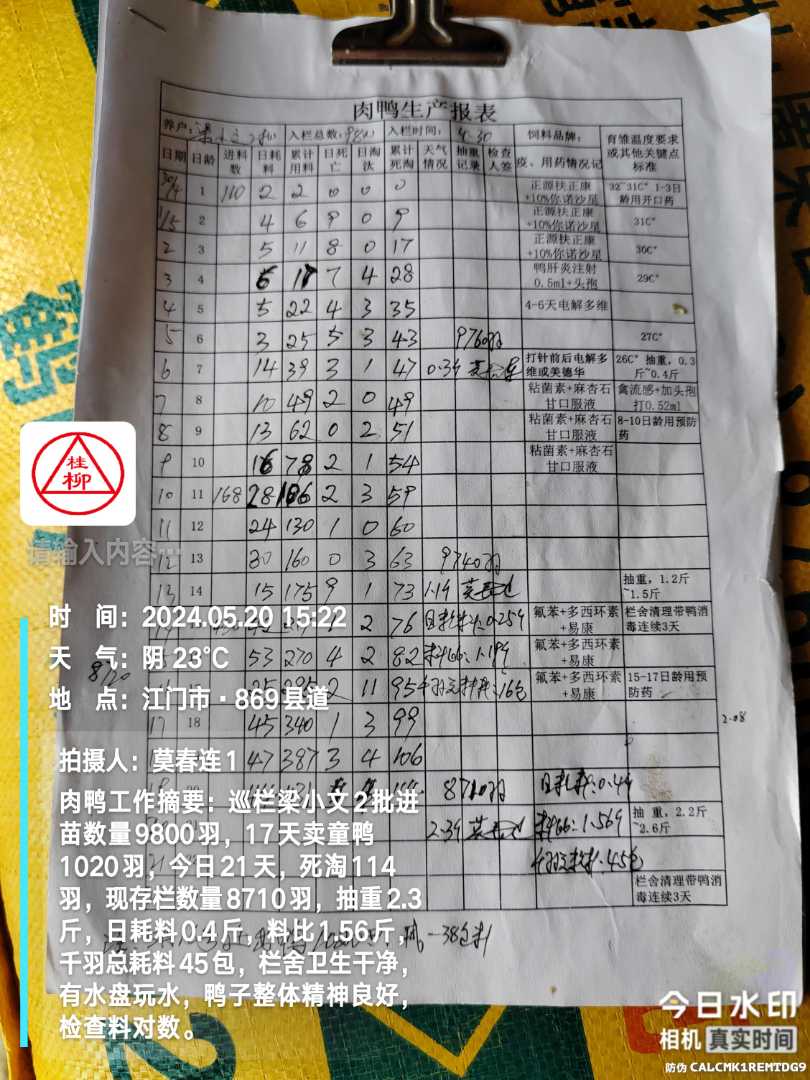 肉鸭生产报表
养户: 入栏总数: 入栏时间: 4.30 饲料品牌: 有雏温度要求或其他关键点标准
日期 日龄 进料数 日耗料 累计用料 日死亡 日淘汰 累计死淘 天气情况 抽重记录 检查人签 疫、用药情况记
30/4 1 110 2 2 0 0 0 正源扶正康+10%你诺沙星 32~31C° 1-3日龄用开口药
1/5 2 4 6 9 0 9 正源扶正康+10%你诺沙星 31C°
2 3 5 11 8 0 17 正源扶正康+10%你诺沙星 30C°
3 4 6 17 7 4 28 鸭肝炎注射0.5ml+头孢 29C°
4 5 5 22 4 3 35 4-6天电解多维
5 6 3 25 5 3 43 9760羽 27C°
6 7 14 39 3 1 47 0.39 打针前后电解多维或美德华 26C° 抽重,0.3斤~0.4斤
7 8 10 49 2 0 49 粘菌素+麻杏石甘口服液 禽流感+加头孢打0.52ml
8 9 13 62 0 2 51 粘菌素+麻杏石甘口服液 8-10日龄用预防药
9 10 16 78 2 1 54 粘菌素+麻杏石甘口服液
10 11 168 28 106 2 3 59
11 12 24 130 1 0 60
12 13 30 160 0 3 63 9740羽
13 14 15 175 9 1 73 抽重,1.2斤~1.5斤
2 76 氟苯+多西环素+易康 栏舍清理带鸭消毒连续3天
53 270 4 2 82 氟苯+多西环素+易康
25 295 2 11 95 氟苯+多西环素+易康 15-17日龄用预防药
17 18 45 340 1 3 99
2.08
47 387 3 4 106
8710羽
抽 重,2.2斤~2.6斤
栏舍清理带鸭消毒连续3天
桂柳
请输入内容…
时 间:2024.05.20 15:22
天 气:阴 23℃
地 点:江门市·869县道
拍摄人:莫春连1
肉鸭工作摘要:巡栏梁小文2批进
苗数量9800羽,17天卖童鸭
1020羽,今日21天,死淘114
羽,现存栏数量8710羽,抽重2.3
斤,日耗料0.4斤,料比1.56斤,
千羽总耗料45包,栏舍卫生干净,
有水盘玩水,鸭子整体精神良好,
检查料对数。
今日水印
相机 真实时间
防伪 CALCMK1REMTDG9